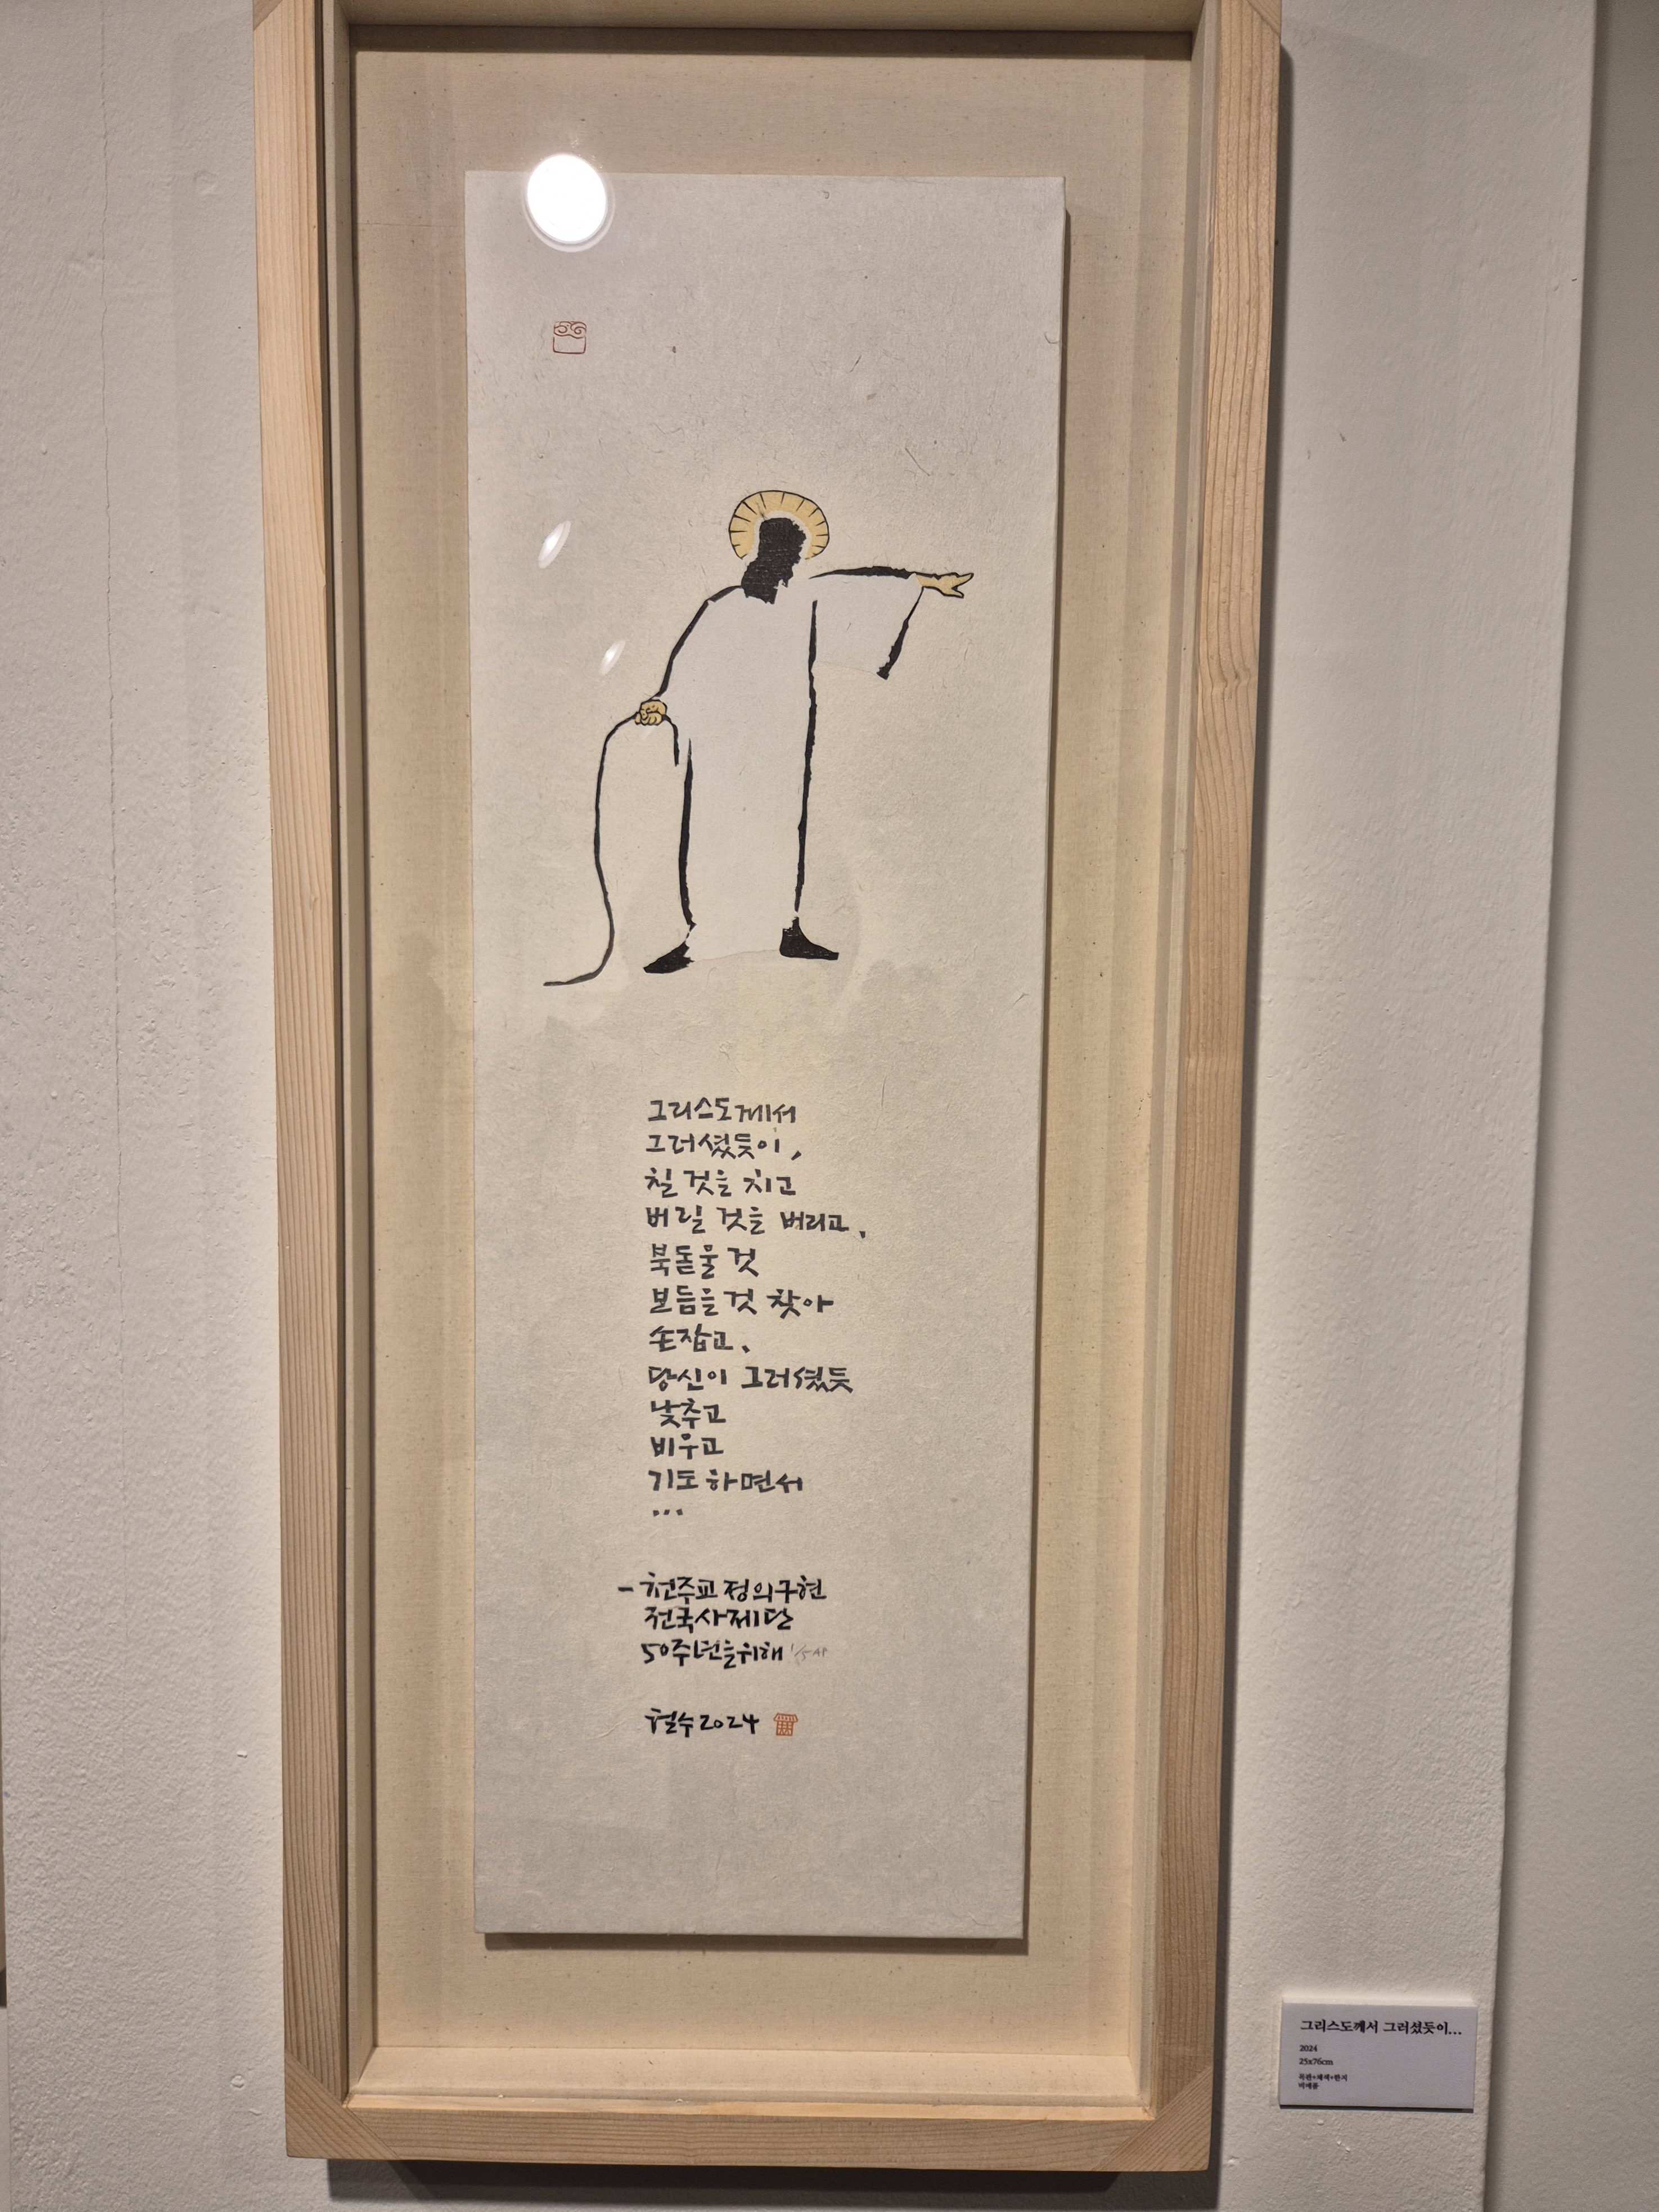 그리스도께서
그러셨듯이,
칠 것을 치고
버릴 것을 버리고,
북돋울 것
보듬을 것 찾아
손잡고,
당신이 그러셨듯
낮추고
비우고
기도하면서
...
- 천주교 정의구현
전국사제단
50주년을 위해 1/5 AP
철수 2024
그리스도께서 그러셨듯이...
2024
25x76cm
목판+채색+한지
비매품